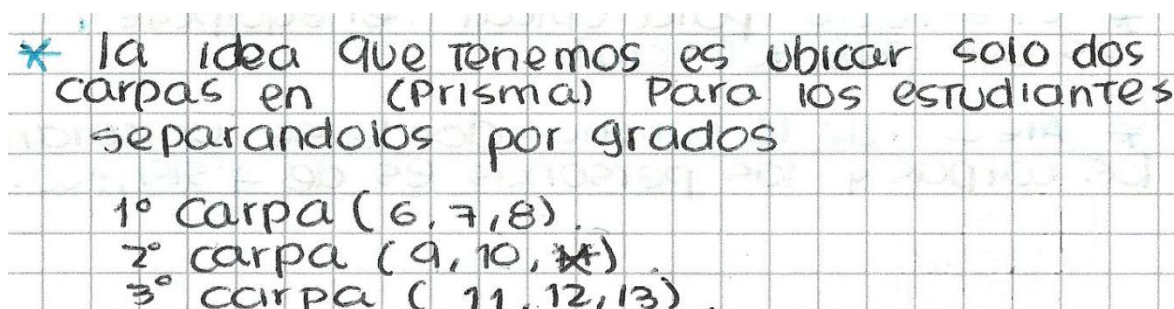 * la idea que tenemos es ubicar solo dos
carpas en (Prisma) Para los estudiantes
separandolos por grados
1° carpa (6, 7, 8).
2° carpa (9, 10, ).
3° carpa ( 11, 12, 13).